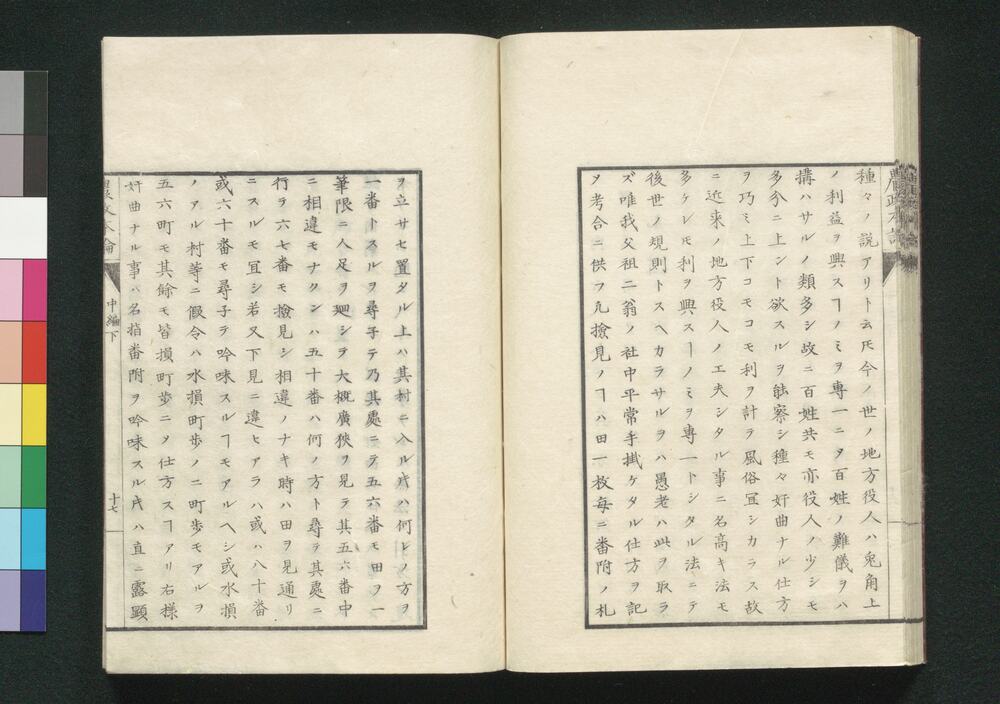 種々ノ說アリト云𪜈今ノ世ノ地方役人ハ兎角上
ノ利益ヲ興スヿノミヲ專一ニ〆百姓ノ難儀ヲハ
搆ハサルノ類多シ故ニ百姓共モ亦役人ノ少シモ
多分ニ上ント欲スルヲ能察シ種々奸曲ナル仕方
ヲ巧ミ上下コモコモ利ヲ計テ風俗冝シカラス故
ニ近来ノ地方役人ノ工夫シタル事ニ名高キ法モ
多ケレ𪜈利ヲ興スヿノミヲ專一トシタル法ニテ
後世ノ規則トスヘカラサルヲハ愚老ハ此ヲ取ラ
ズ唯我父祖二翁ノ社中平常手掛ケタル仕方ヲ記
〆考合ニ供フ凢撿見ノヿハ田一枚每ニ番附ノ札
ヲ立サセ置タル上ハ其村ニ入ル片ハ何レノ方ヲ
一番トスルヲ尋子テ乃其處ニテ五六番モ田ヲ一
筆限ニ人足ヲ廻シテ大概廣狹ヲ見テ其五六番中
ニ相違モナクンハ五十番ハ何ノ方ト尋テ其處ニ
行テ六七番モ撿見シ相違ノナキ時ハ田ヲ見通リ
ニスルモ冝シ若又下見ニ違ヒアラハ或ハ八十番
或六十番モ尋子テ吟味スルヿモアルヘシ或水損
ノアル村等ニ假令ハ水損町歩ノ二町歩モアルヲ
五六町モ其餘モ皆損町歩ニ〆仕方スヿアリ右樣
奸曲ナル事ハ名指番附ヲ吟味スル片ハ直ニ露顯
農政本論
中編下
十七